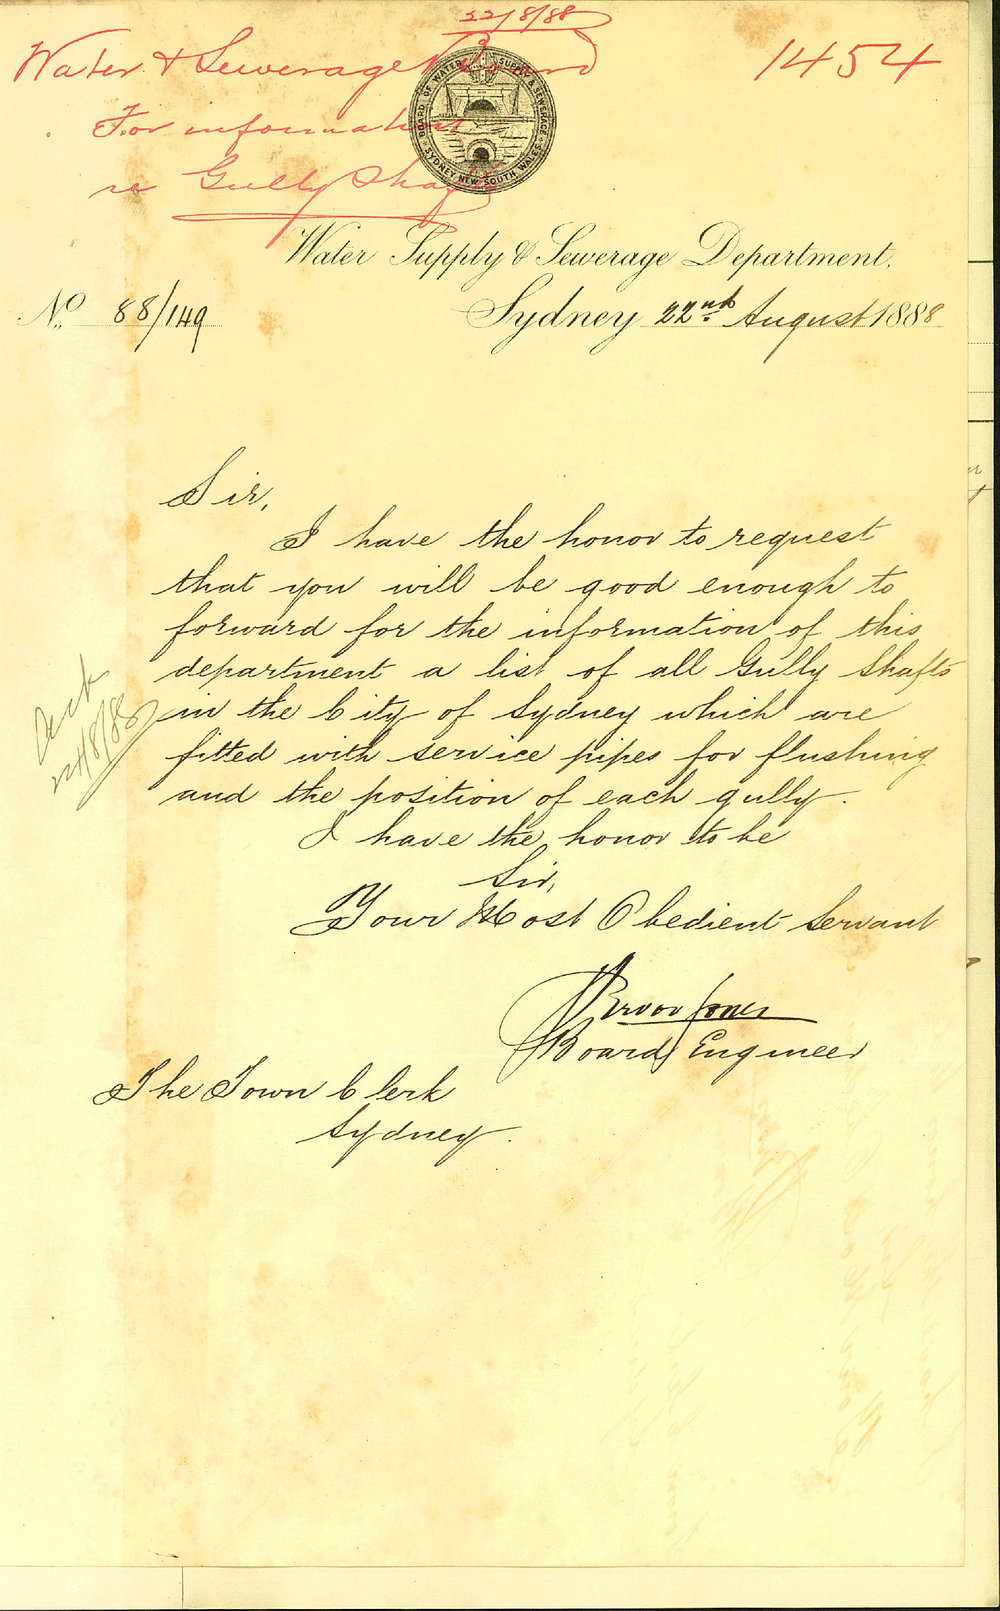 22/8/88
Water & Sewerage Board
1454
For information
re Gully Shafts
BOARD OF WATER SUPPLY & SEWERAGE
SYDNEY NEW SOUTH WALES
Water Supply & Sewerage Department.
No. 88/149
Sydney 22nd August 1888
Sir,
I have the honor to request
that you will be good enough to
forward for the information of this
department a list of all Gully Shafts
in the City of Sydney which are
fitted with service pipes for flushing
and the position of each gully.
I have the honor to be
Sir,
Your Most Obedient Servant
Jones
Board Engineer
The Town Clerk
Sydney.
24/8/88